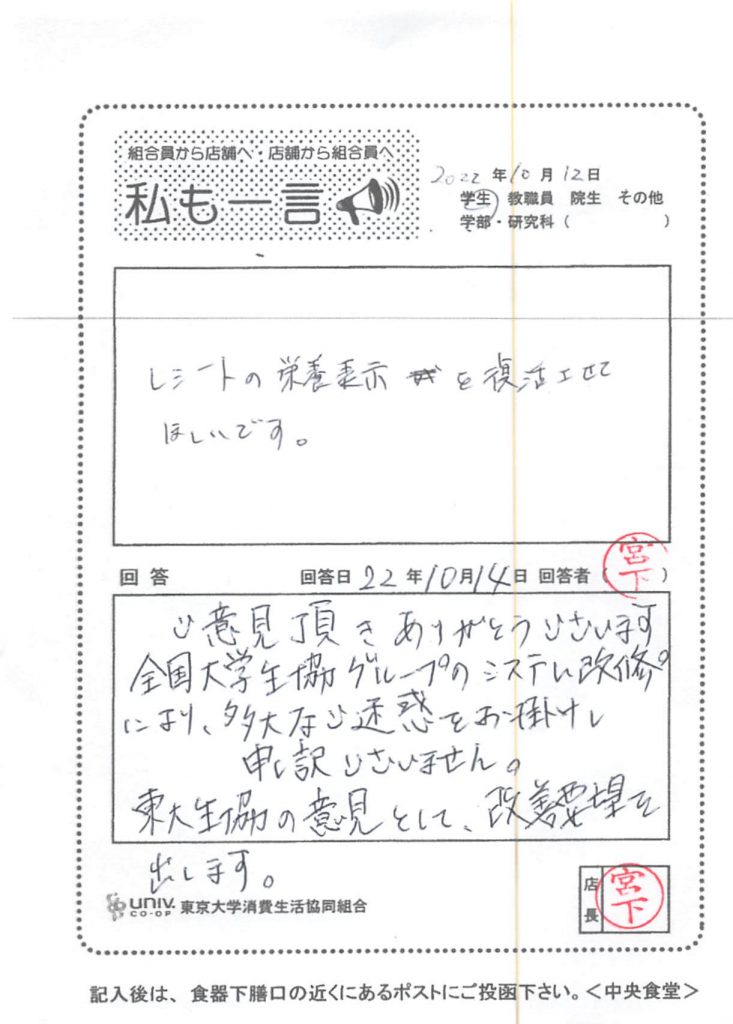 組合員から店舗へ・店舗から組合員へ
私も一言
2022年10月12日
学生 教職員 院生 その他
学部・研究科（ ）
レシートの栄養表示を復活させて
ほしいです。
回答 回答日 22年10月14日 回答者（宮下）
ご意見頂きありがとうございます
全国大学生協グループのシステム改修
により、多大なご迷惑をお掛けし
申し訳ございません。
東大生協の意見として、改善要望を
出します。
店長 宮下
UNIV. CO-OP 東京大学消費生活協同組合
記入後は、食器下膳口の近くにあるポストにご投函下さい。＜中央食堂＞